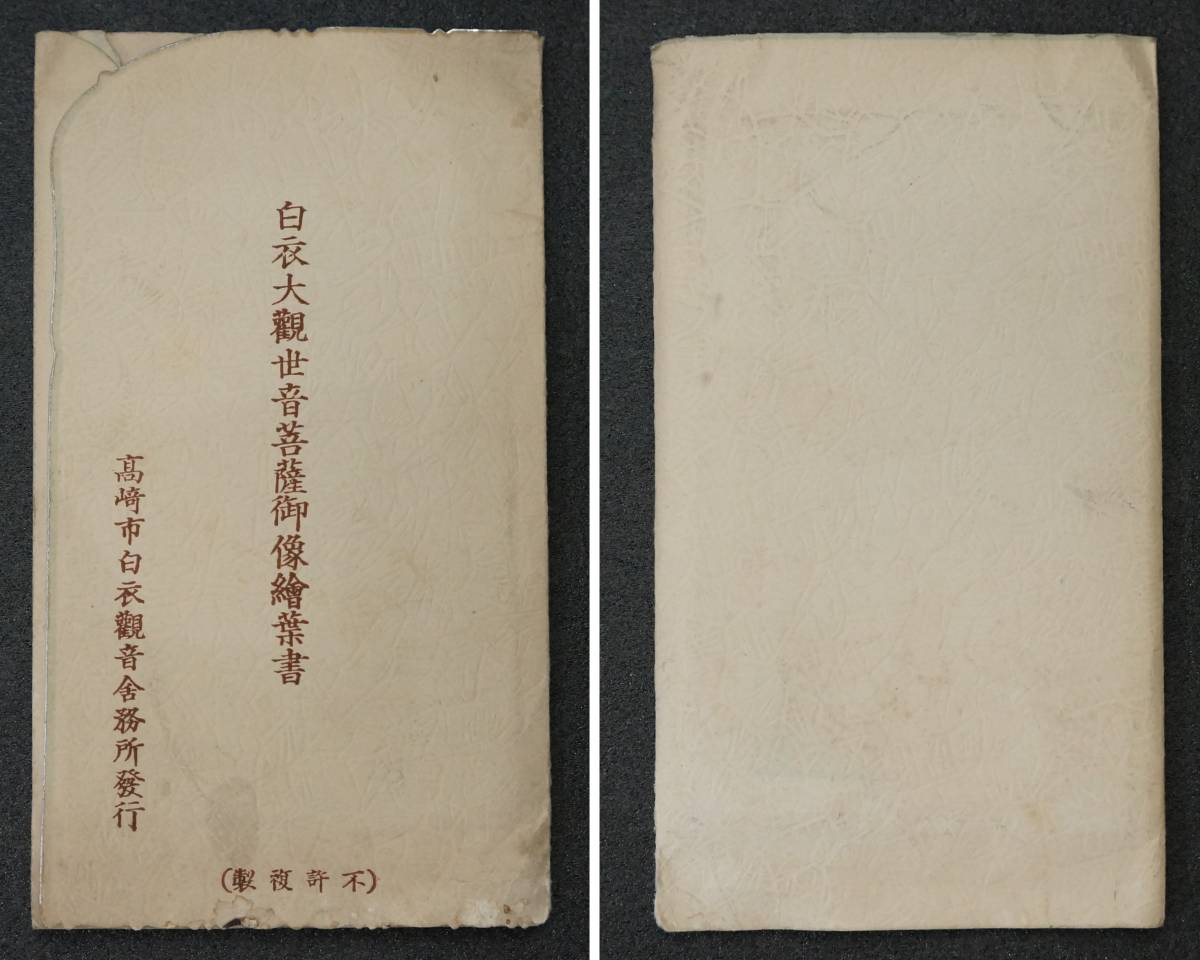 白衣大觀世音菩薩御像繪葉書
高崎市白衣觀音舍務所發行
(不許複製)